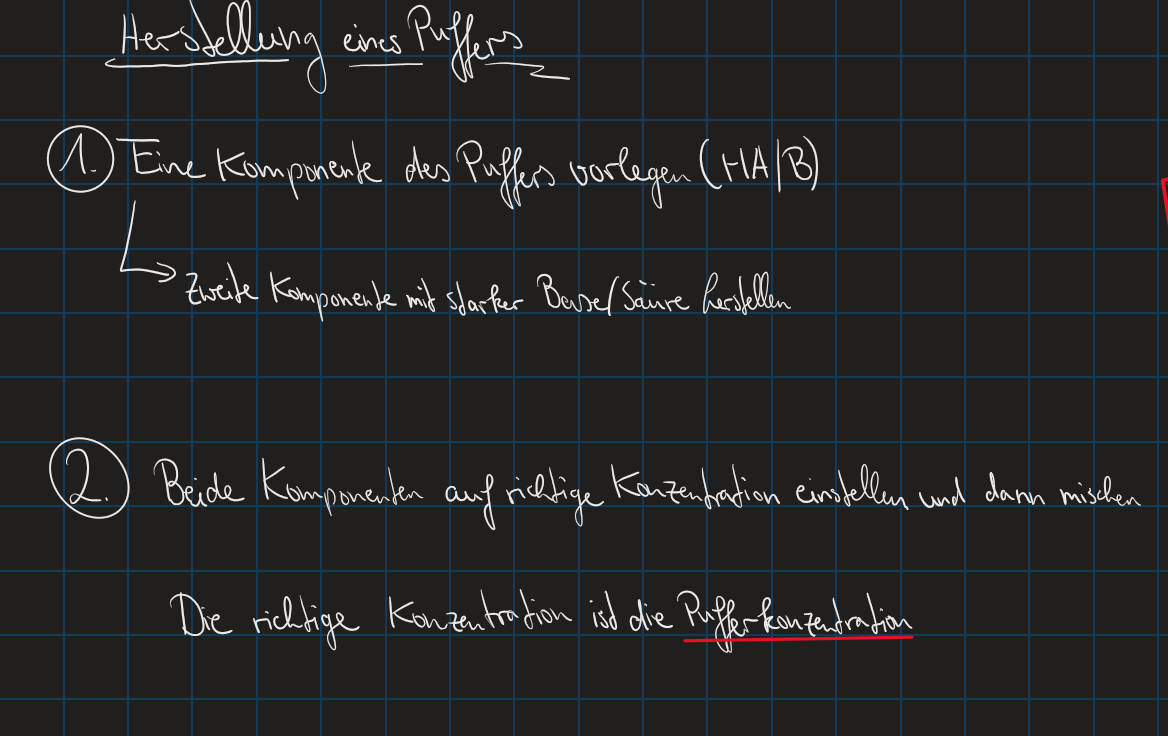 Herstellung eines Puffers
1. Eine Komponente des Puffers vorlegen (HA/B)
Zweite Komponente mit starker Base/Säure herstellen
2. Beide Komponenten auf richtige Konzentration einstellen und dann mischen
Die richtige Konzentration ist die Pufferkonzentration